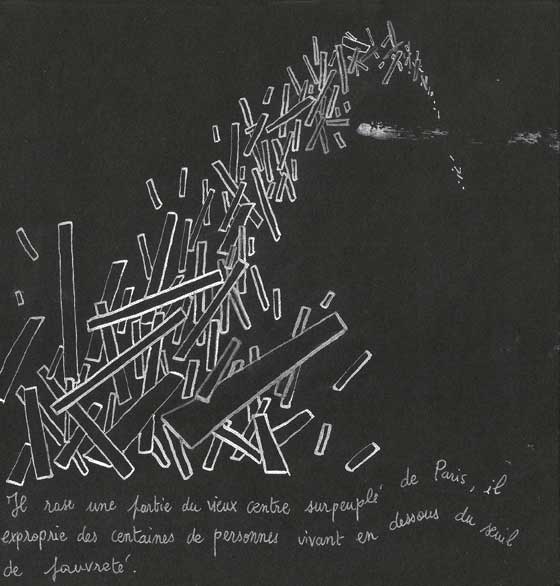 Il rase une partie du vieux centre surpeuplé de Paris, il
exproprie des centaines de personnes vivant en dessous du seuil
de pauvreté.